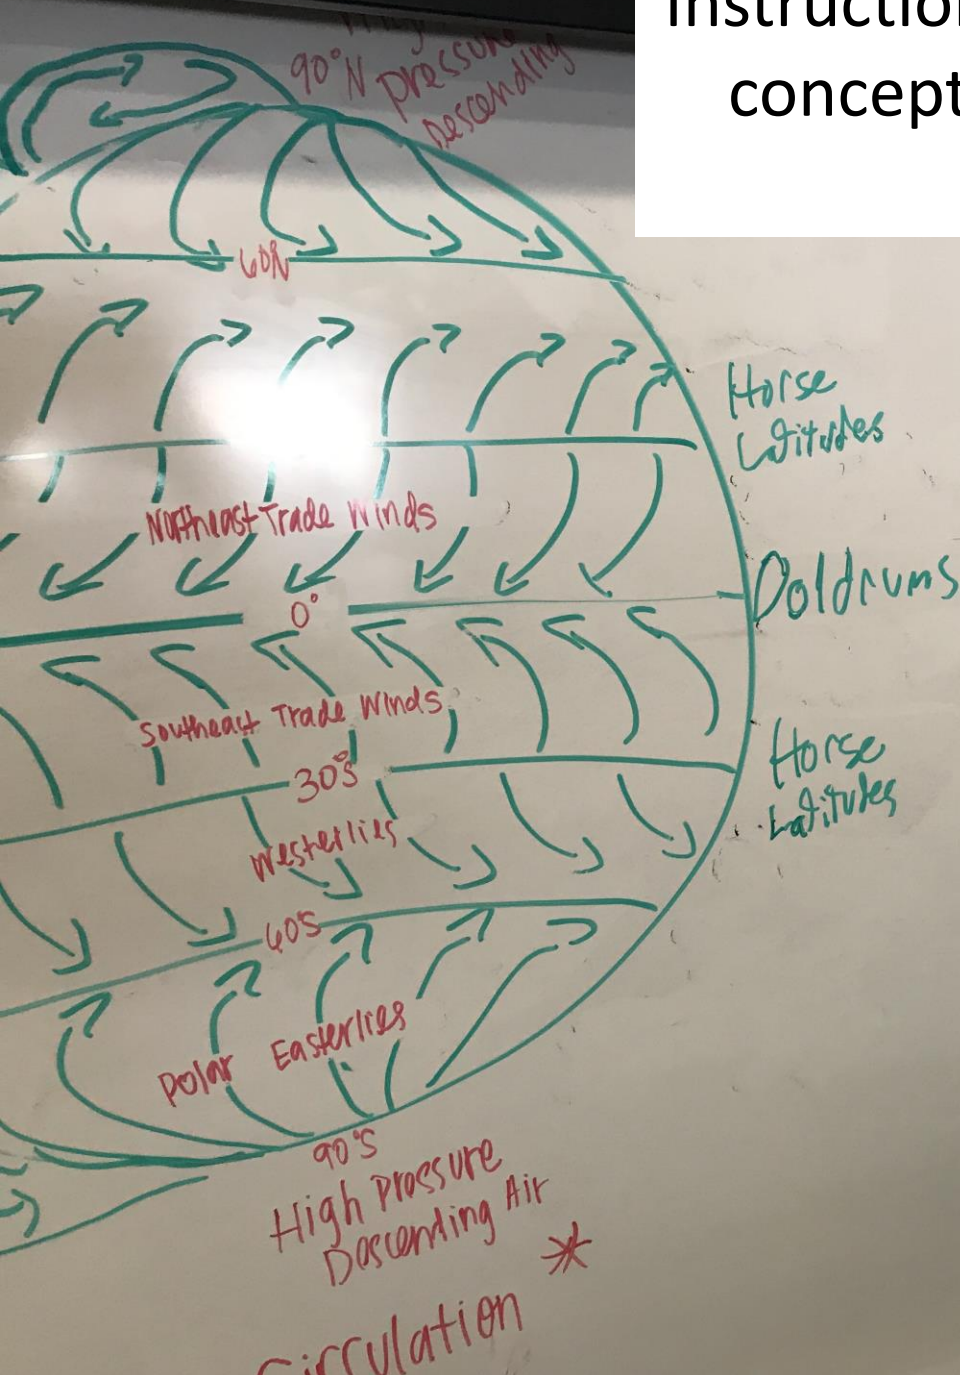 instruction
concept
90°N
pressure
Descending
60N
Horse
Latitudes
Northeast Trade Winds
0°
Doldrums
Southeast Trade Winds
30°S
Horse
Latitudes
Westerlies
60S
Polar Easterlies
90°S
High Pressure
Descending Air
Circulation